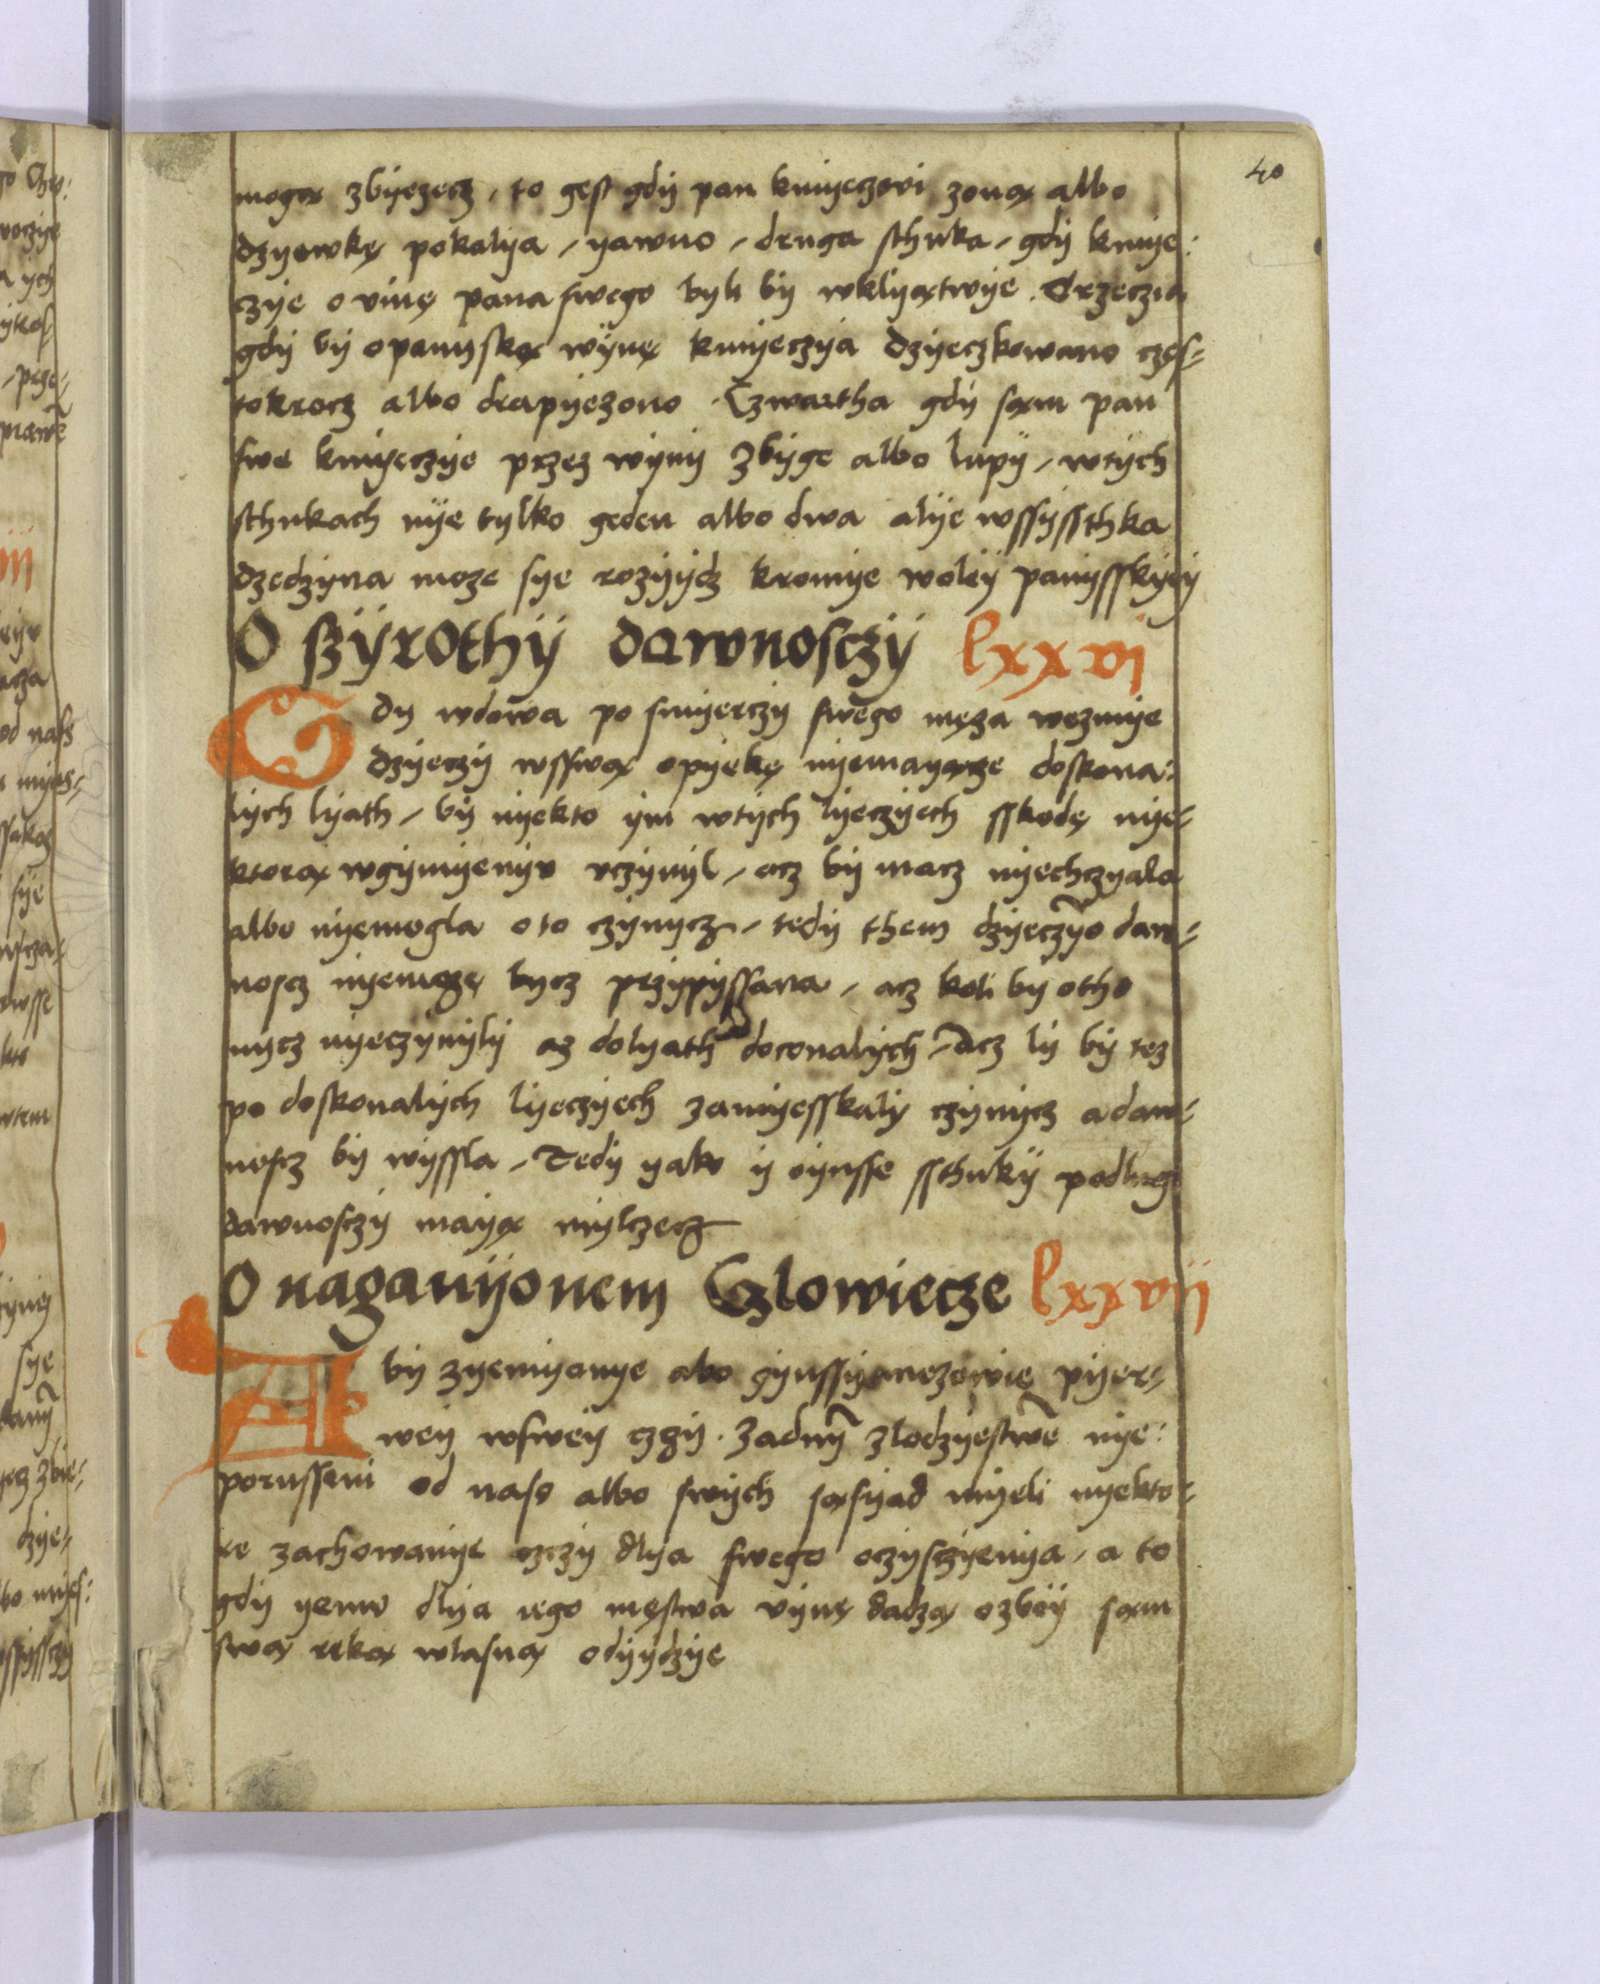 40
mogą zbyezecz / to gest gdÿ pan kmyeczovi zoną albo
dzyewkę pokalya / yawno / druga sthuka / gdÿ kmye:
czye o vinę pana swego byli bÿ wklyątwye . Trzeczia
gdÿ bÿ opanyską wÿnę kmyeczya dzyeczkowano częs-
tokrocz albo drapyezono . Czwartha gdÿ sąm pan
swe kmyeczye przez wÿnÿ zbÿge albo lupÿ / wtÿch
sthukach nÿe tylko geden albo dwa alÿe wssÿssthka
dzedzyna moze sye rozÿÿdz kromye wolëÿ panysskyey
O szÿrothÿ dawnosczÿ lxxvi
Gdy wdowa po smyerczÿ swego męza wezmye
dzyeczÿ wsswą opyekę nyemayącze doskona:
lych lyath / bÿ nyekto ym wtÿch lyeczyech sskodę nye-
ktorą wgymyenyv vczynyl / acz bÿ macz nyechczyala
albo nyemogla o to czynycz / tedÿ them dzyeczyo daw-
noscz nyemozę bycz przypyssana / acz koli by otho
nycz nyeczynylÿ az dolyath doconalych / Acz lÿ bÿ tez
po doskonalych lyeczyech zamyesskalÿ czynycz a daw-
noscz bÿ wyssla / Tedÿ yako ÿ oynsse sthukÿ podlug
dawnosczÿ mayą mylczecz
O naganyonem Człowiecze lxxvij
Abÿ zyemyanye abo gynssyąmezowię pyer-
wey wswëy czgy . zadny̅ zlodzyestwe̅ nye:
porusseni od naso albo swych sąsyad myeli nyekto-
re zachowanye czczy dlya swego oczysczyenya / a to
gdÿ yemv dlya iego męstwa vynę dadzą ozbëÿ sąm
swą ręką wlasną odyydzye